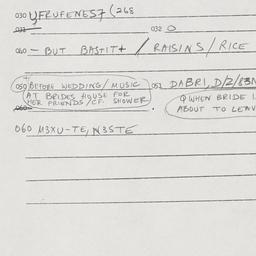 030 YFRUFENES7 (268
031
032 O
040 - BUT BASTIT+ / RAISINS / RICE
050 BEFORE WEDDING / MUSIC
AT BRIDES HOUSE FOR
HER FRIENDS / CF. SHOWER
051 DABRI, D/2/83N
Q WHEN BRIDE I
ABOUT TO LEAV
060
060 M3XU-TE, N3STE